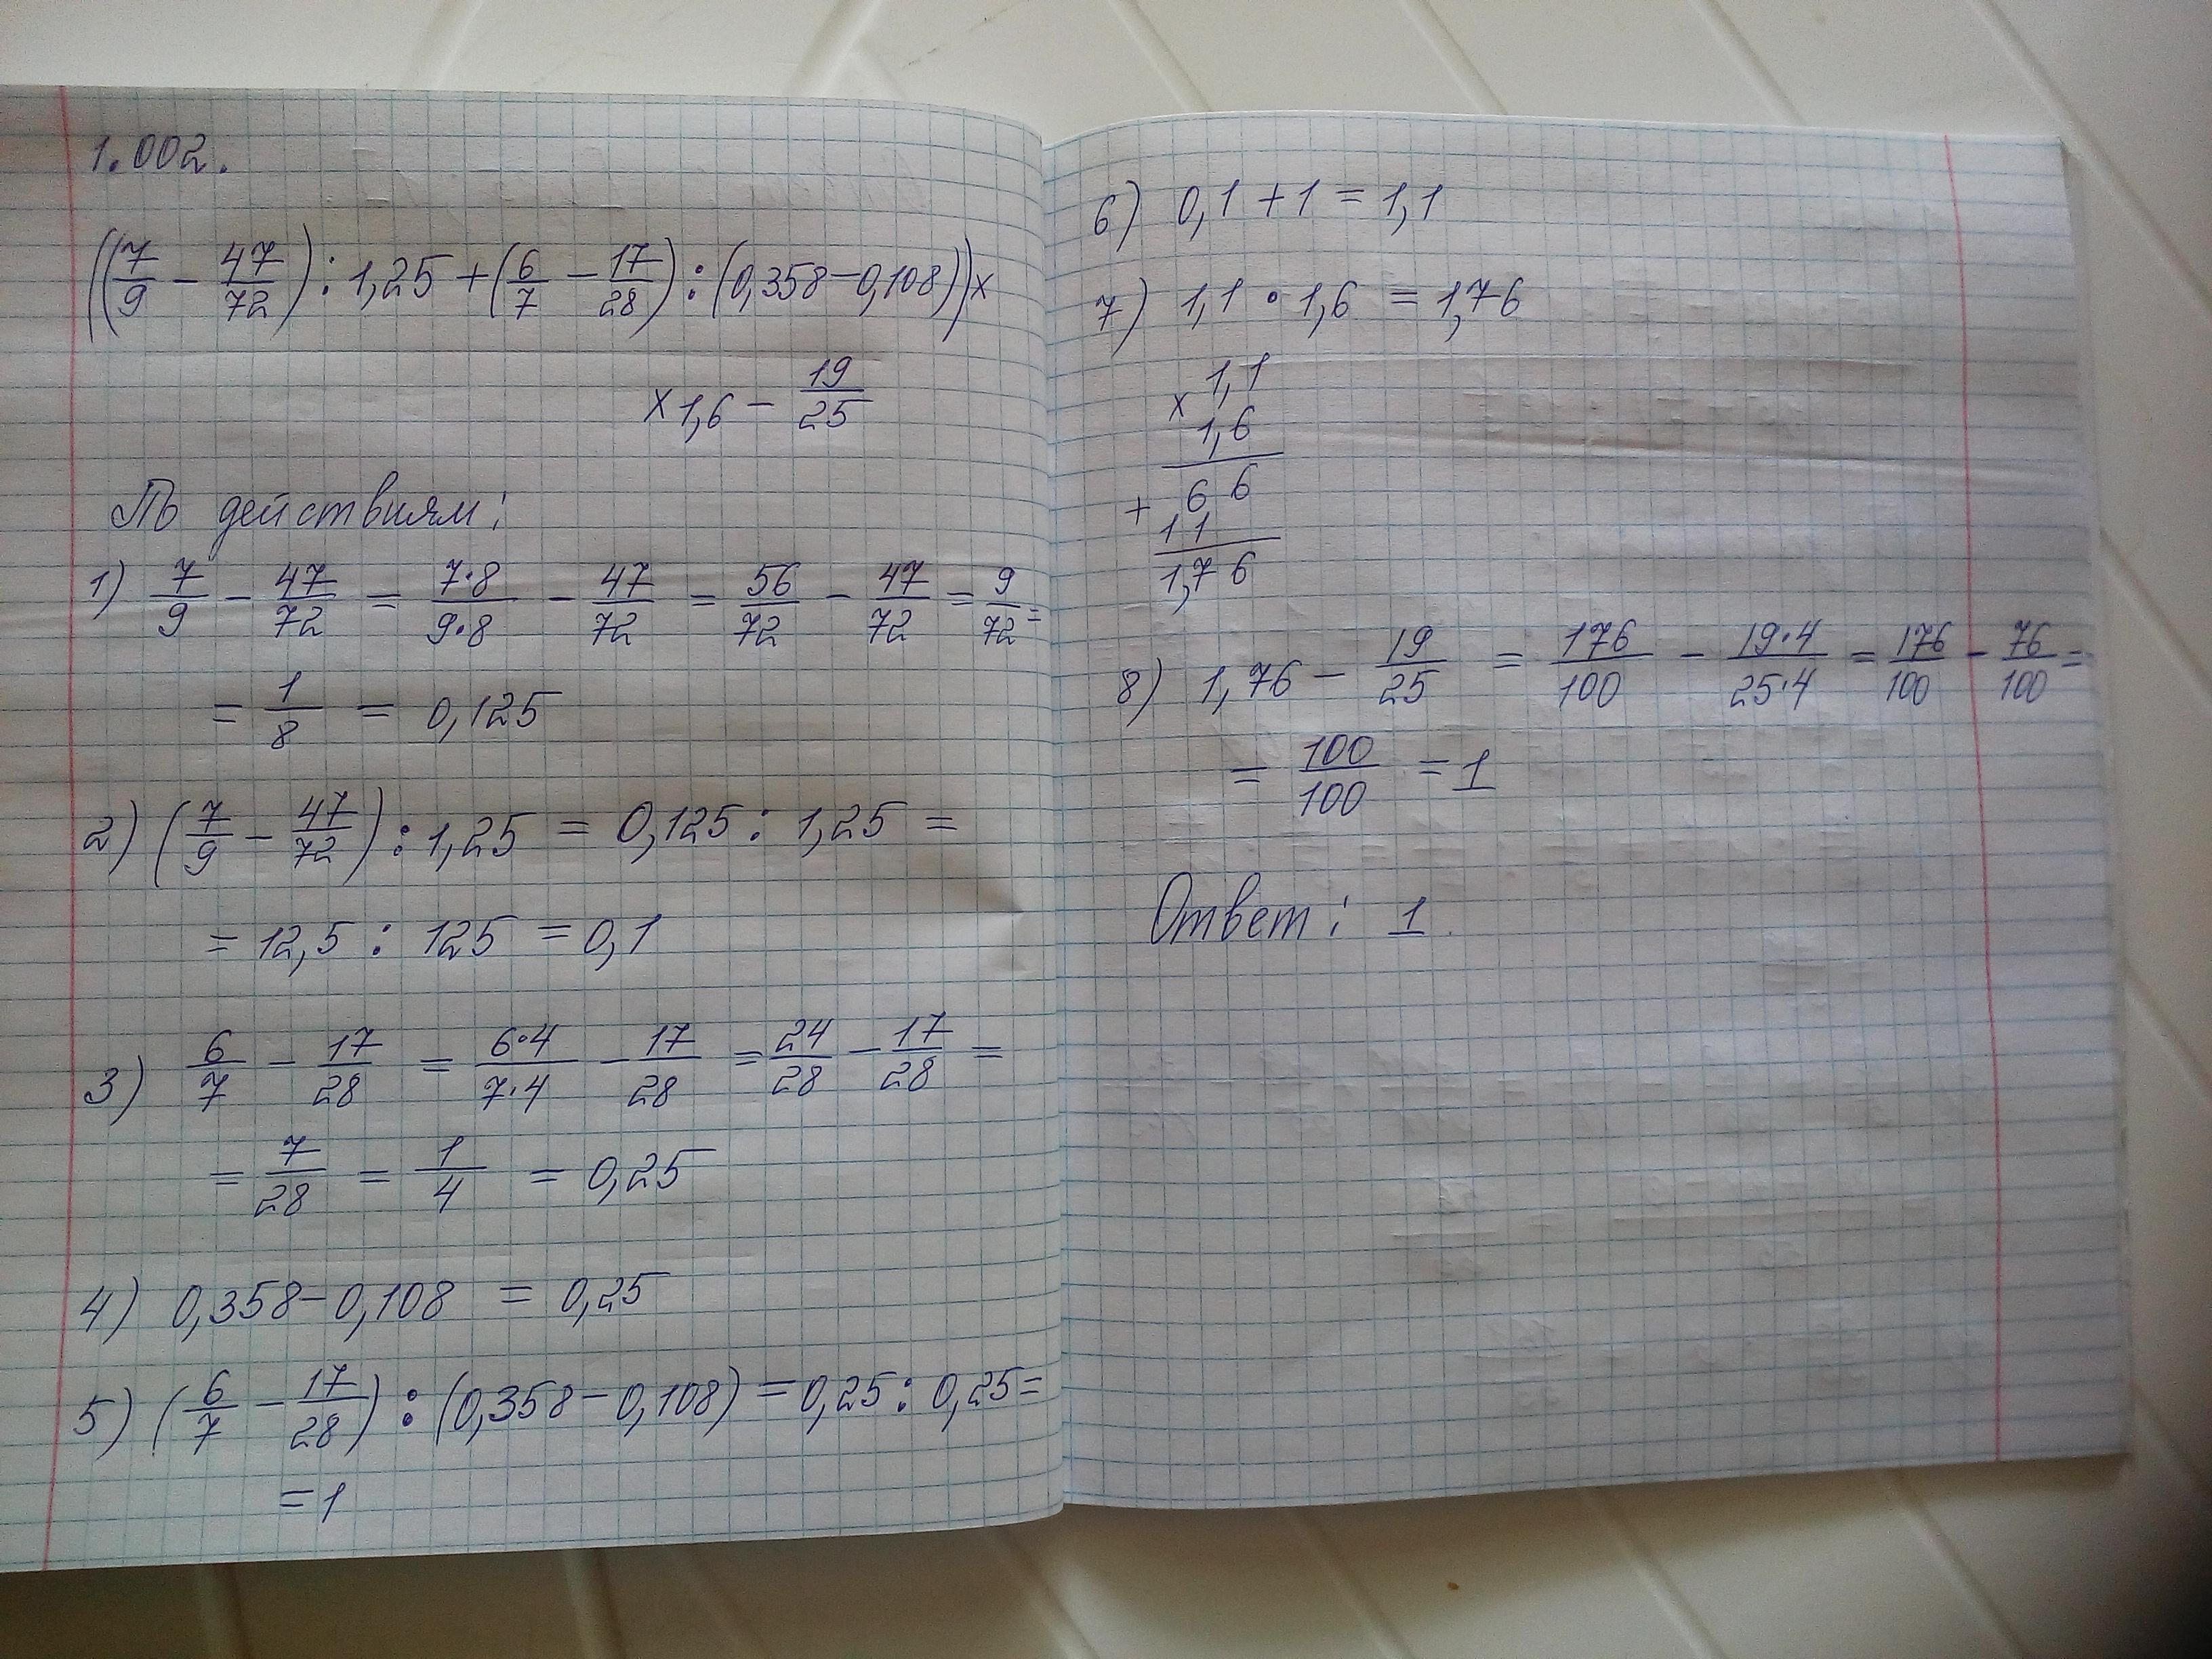 1.002.
((7/9 - 47/72) : 1,25 + (6/7 - 17/28) : (0,358 - 0,108)) x
x 1,6 - 19/25
По действиям:
1) 7/9 - 47/72 = 7·8/9·8 - 47/72 = 56/72 - 47/72 = 9/72 =
= 1/8 = 0,125
2) (7/9 - 47/72) : 1,25 = 0,125 : 1,25 =
= 12,5 : 125 = 0,1
3) 6/7 - 17/28 = 6·4/7·4 - 17/28 = 24/28 - 17/28 =
= 7/28 = 1/4 = 0,25
4) 0,358 - 0,108 = 0,25
5) (6/7 - 17/28) : (0,358 - 0,108) = 0,25 : 0,25 =
= 1
6) 0,1 + 1 = 1,1
7) 1,1 · 1,6 = 1,76
1,1
x 1,6
+ 6 6
1 1
1,76
8) 1,76 - 19/25 = 176/100 - 19·4/25·4 = 176/100 - 76/100 =
= 100/100 = 1
Ответ: 1.